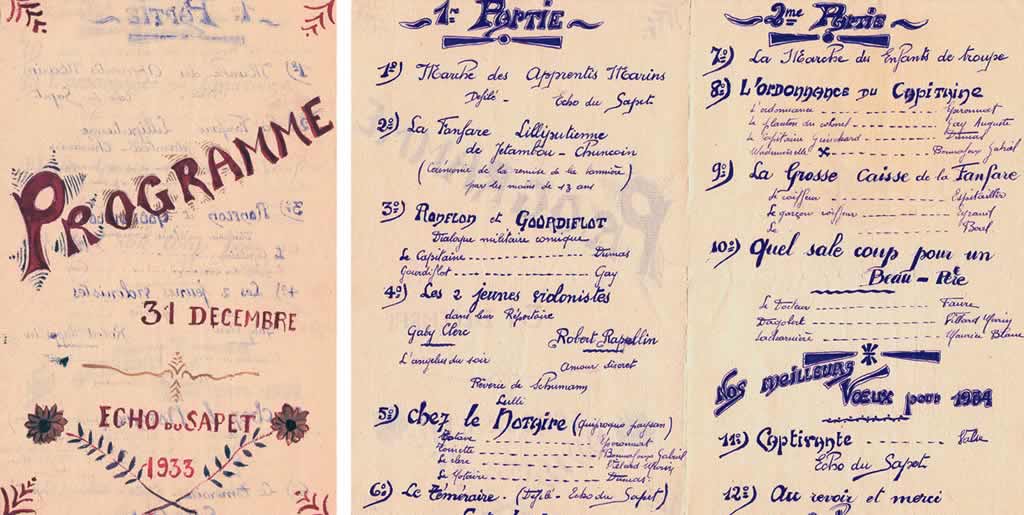 PROGRAMME
31 DECEMBRE
ECHO DU SAPET
1933
1re Partie
1º) Marche des Apprentis Marins
Défilé - Echo du Sapet
2º) La Fanfare Lilliputienne
de
(Cérémonie de la remise de la bannière)
par les moins de 13 ans
3º) Ronflon et Gourdiflot
Dialogue militaire comique
Le Capitaine Dumas
Gourdiflot Gay
4º) Les 2 jeunes violonistes
dans leur Répertoire
Gaby Clerc Robert Rapellin
L'angelus du soir Amour discret
Rêverie de Schumann
Lulli
5º) Chez le Notaire (Quiproquo paysan)
Yvronnat
Toinette Bonnafoux Gabriel
Le père
Le Notaire Dumas
6º) Le Téméraire. (Défilé - Echo du Sapet)
2me Partie
7º) La Marche des Enfants de troupe
8º) L'ordonnance du Capitaine
L'ordonnance Yvronnat
Le planton du colonel Gay Auguste
Le Capitaine Dumas
Mademoiselle Bonnafoux Gabriel
9º) La Grosse Caisse de la Fanfare
Le coiffeur Espitallier
Le garçon coiffeur Eyraud
Le
10º) Quel sale coup pour un
Beau-Père
Le Docteur Faure
Dagobert
Maurice Blanc
Nos meilleurs
Vœux pour 1934
11º) Captivante Valse
Echo du Sapet
12º) Au revoir et merci